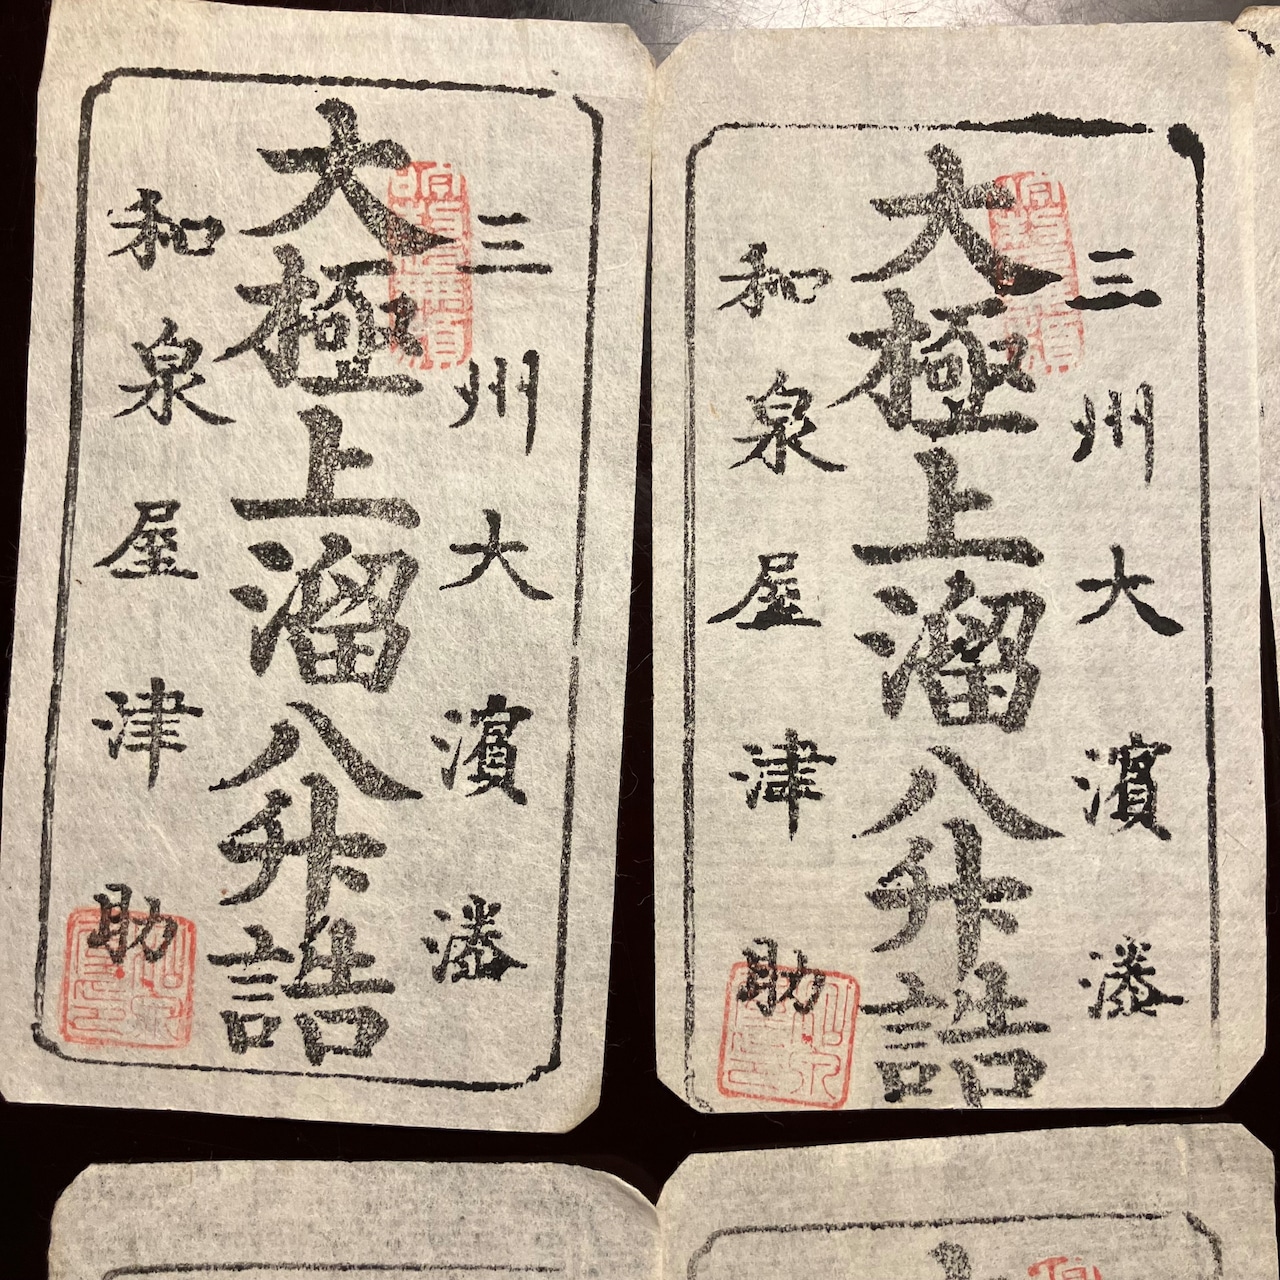 三州大濱湊
大極上溜八升詰
和泉屋津助
三州大濱湊
大極上溜八升詰
和泉屋津助